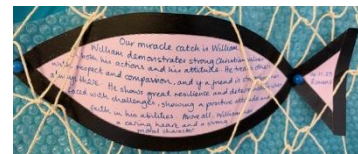 Our miracle catch is William.
William demonstrates strong Christian values
both his actions and his attitude. He treats others
with respect and compassion, and if a friend is
always there. He shows great resilience and
faced with challenges, showing a positive attitude and
faith in his abilities. Above all, William
a caring heart and a strong
moral character.